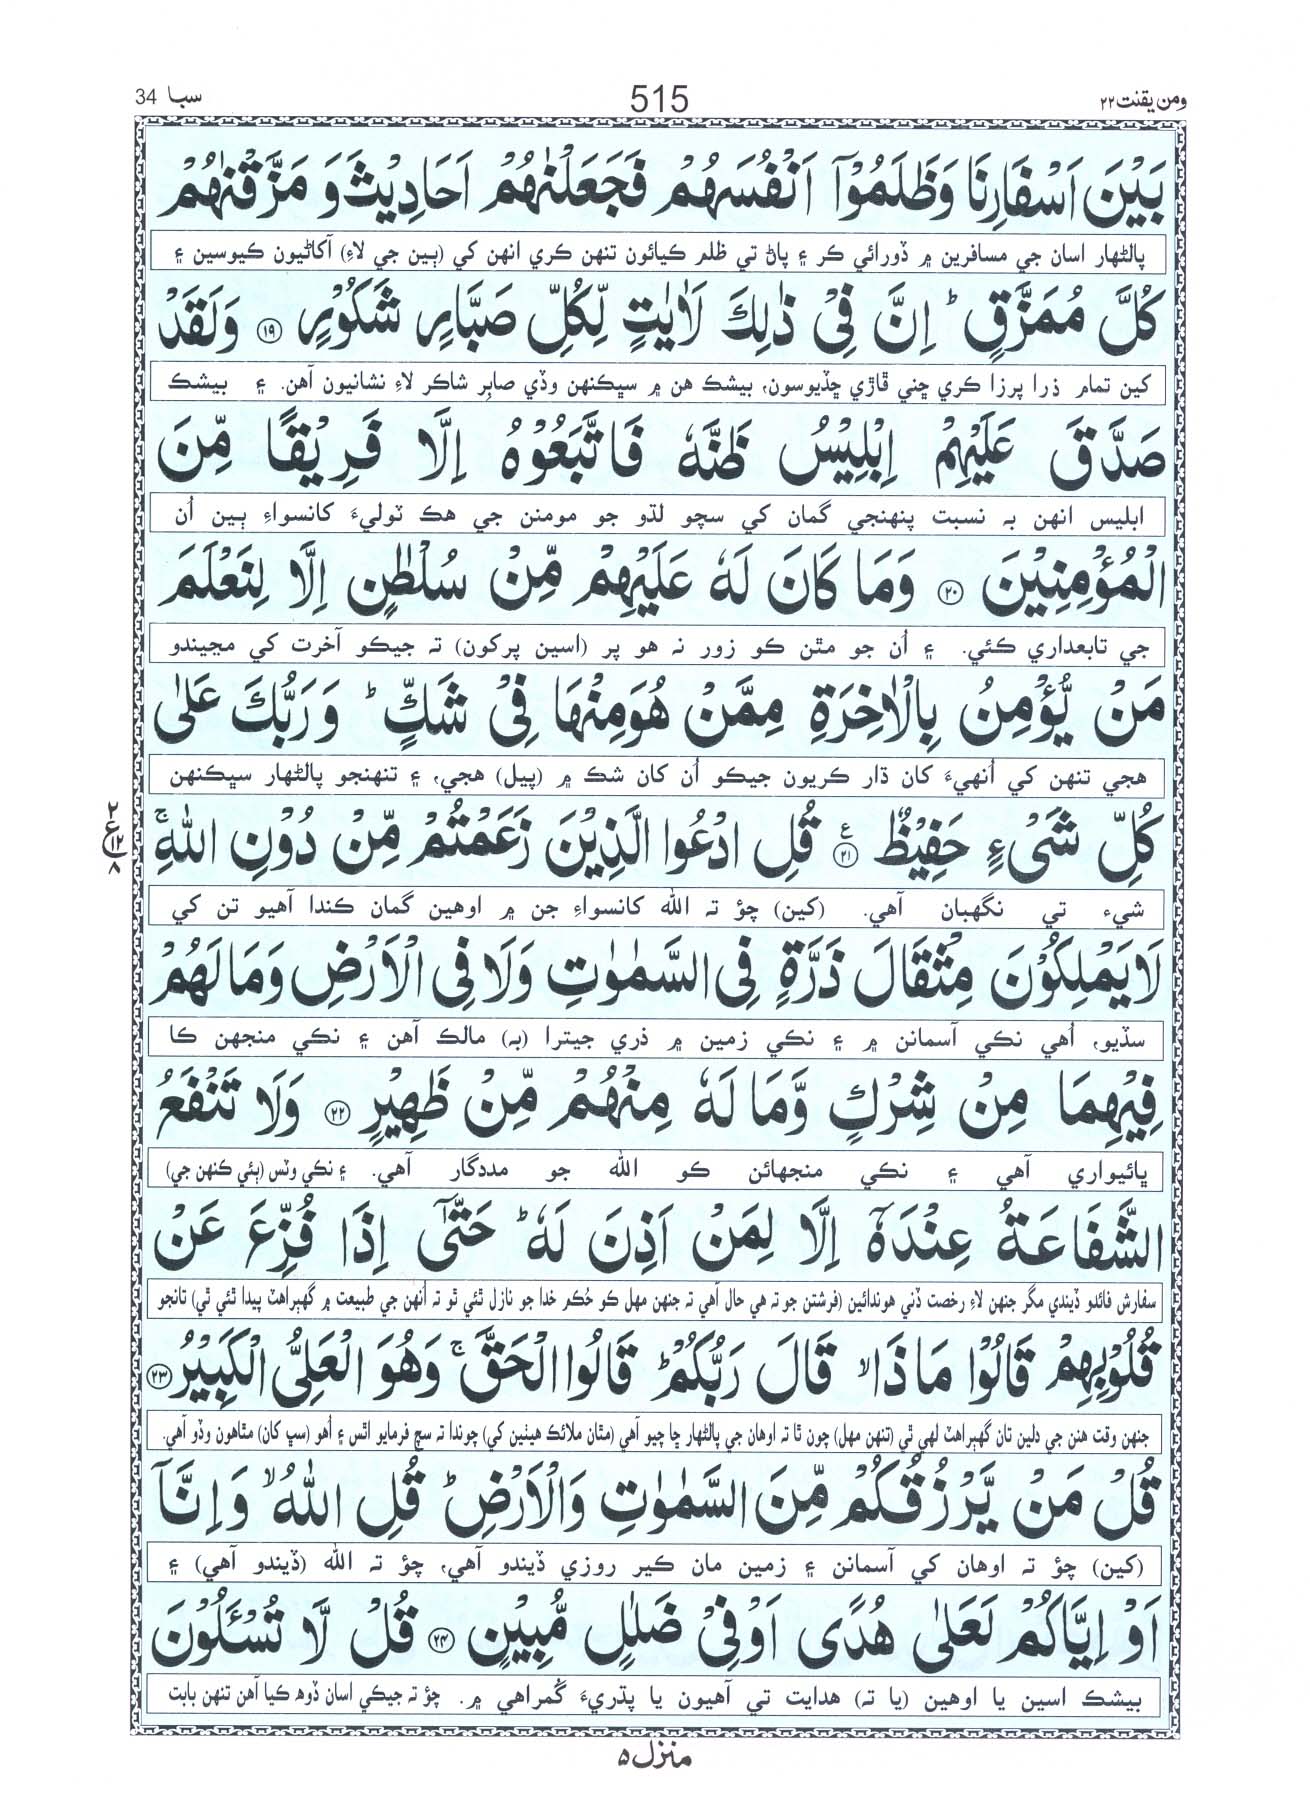 ومن يقنت ٢٢ 515 سبا 34
بَيْنَ اَسْفَارِنَا وَظَلَمُوْٓا اَنْفُسَهُمْ فَجَعَلْنٰهُمْ اَحَادِيْثَ وَ مَزَّقْنٰهُمْ
پالڻهار اسان جي مسافرين ۾ ڏورائي ڪر ۽ پاڻ تي ظلم ڪيائون تنهن ڪري انهن کي (ٻين جي لاءِ) آکاڻيون ڪيوسين ۽
كُلَّ مُمَزَّقٍ ؕ اِنَّ فِيْ ذٰلِكَ لَاٰيٰتٍ لِّكُلِّ صَبَّارٍ شَكُوْرٍ ﴿١٩﴾ وَلَقَدْ
کين تمام ذرا پرزا ڪري چني ڦاڙي ڇڏيوسون، بيشڪ هن ۾ سڀڪنهن وڏي صابِر شاڪر لاءِ نشانيون آهن. ۽ بيشڪ
صَدَّقَ عَلَيْهِمْ اِبْلِيْسُ ظَنَّهٗ فَاتَّبَعُوْهُ اِلَّا فَرِيْقًا مِّنَ
ابليس انهن بہ نسبت پنهنجي گمان کي سچو لڌو جو مومنن جي هڪ ٽوليءَ کانسواءِ ٻين اُن
الْمُؤْمِنِيْنَ ﴿٢٠﴾ وَمَا كَانَ لَهٗ عَلَيْهِمْ مِّنْ سُلْطٰنٍ اِلَّا لِنَعْلَمَ
جي تابعداري ڪئي. ۽ اُن جو مٿن ڪو زور نہ هو پر (اسين پرکون) تہ جيڪو آخرت کي مڃيندو
مَنْ يُّؤْمِنُ بِالْاٰخِرَةِ مِمَّنْ هُوَ مِنْهَا فِيْ شَكٍّ ؕ وَ رَبُّكَ عَلٰى
هجي تنهن کي اُنهيءَ کان ڌار ڪريون جيڪو اُن کان شڪ ۾ (پيل) هجي، ۽ تنهنجو پالڻهار سڀڪنهن
كُلِّ شَيْءٍ حَفِيْظٌ ﴿٢١﴾ ع قُلِ ادْعُوا الَّذِيْنَ زَعَمْتُمْ مِّنْ دُوْنِ اللّٰهِ ۚ
٢ ع ١٢ ٨
شيء تي نگهبان آهي. (کين) چؤ تہ الله کانسواءِ جن ۾ اوهين گمان ڪندا آهيو تن کي
لَا يَمْلِكُوْنَ مِثْقَالَ ذَرَّةٍ فِي السَّمٰوٰتِ وَلَا فِي الْاَرْضِ وَمَا لَهُمْ
سڏيو، اُهي نڪي آسمانن ۾ ۽ نڪي زمين ۾ ذري جيترا (بہ) مالڪ آهن ۽ نڪي منجهن ڪا
فِيْهِمَا مِنْ شِرْكٍ وَّمَا لَهٗ مِنْهُمْ مِّنْ ظَهِيْرٍ ﴿٢٢﴾ وَلَا تَنْفَعُ
ڀائيواري آهي ۽ نڪي منجهائن ڪو الله جو مددگار آهي. ۽ نڪي وٽس (ٻئي ڪنهن جي)
الشَّفَاعَةُ عِنْدَهٗٓ اِلَّا لِمَنْ اَذِنَ لَهٗ ؕ حَتّٰٓى اِذَا فُزِّعَ عَنْ
سفارش فائدو ڏيندي مگر جنهن لاءِ رخصت ڏني هوندائين (فرشتن جو تہ هي حال آهي تہ جنهن مهل ڪو حُڪم خدا جو نازل ٿئي ٿو تہ اُنهن جي طبيعت ۾ گهٻراهٽ پيدا ٿئي ٿي) تانجو
قُلُوْبِهِمْ قَالُوْا مَاذَا ۙ قَالَ رَبُّكُمْ ؕ قَالُوا الْحَقَّ ۚ وَهُوَ الْعَلِيُّ الْكَبِيْرُ ﴿٢٣﴾
جنهن وقت هنن جي دلين تان گهٻراهٽ لهي ٿي (تنهن مهل) چون ٿا تہ اوهان جي پالڻهار ڇا چيو آهي (مٿان ملائڪ هيٺين کي) چوندا تہ سچ فرمايو اٿس ۽ اُهو (سڀ کان) مٿاهون وڏو آهي.
قُلْ مَنْ يَّرْزُقُكُمْ مِّنَ السَّمٰوٰتِ وَالْاَرْضِ ؕ قُلِ اللّٰهُ ۙ وَ اِنَّآ
(کين) چؤ تہ اوهان کي آسمانن ۽ زمين مان ڪير روزي ڏيندو آهي، چؤ تہ الله (ڏيندو آهي) ۽
اَوْ اِيَّاكُمْ لَعَلٰى هُدًى اَوْ فِيْ ضَلٰلٍ مُّبِيْنٍ ﴿٢٤﴾ قُلْ لَّا تُسْـَٔلُوْنَ
بيشڪ اسين يا اوهين (يا تہ) هدايت تي آهيون يا پڌريءَ گُمراهي ۾. چؤ تہ جيڪي اسان ڏوھ ڪيا آهن تنهن بابت
منزل ٥